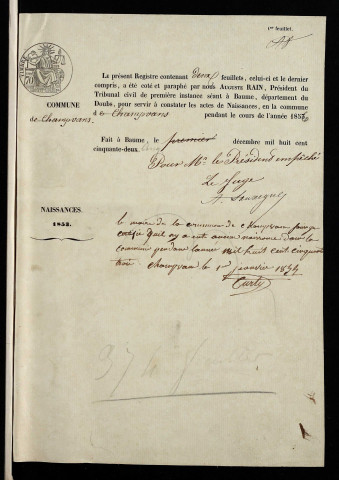 1er feuillet.
La présent Registre contenant deux feuillets, celui-ci et le dernier
compris, a été coté et paraphé par nous AUGUSTE RAIN, Président du
Tribunal civil de première instance séant à Baume, département du
Doubs, pour servir à constater les actes de Naissances, en la commune
de Champvans pendant le cours de l'année 1853
COMMUNE
de Champvans.
Fait à Baume, le premier décembre mil huit cent
cinquante-deux.
Pour Mr. le Président empêché
Le Juge
NAISSANCES.
1853.
le maire de la commune de Champvans
certifie qu'il n'y a eut aucune naissance dans la
commune pendant l'année mil huit cent cinquante
trois Champvans le 1er janvier 1854
Curty
97